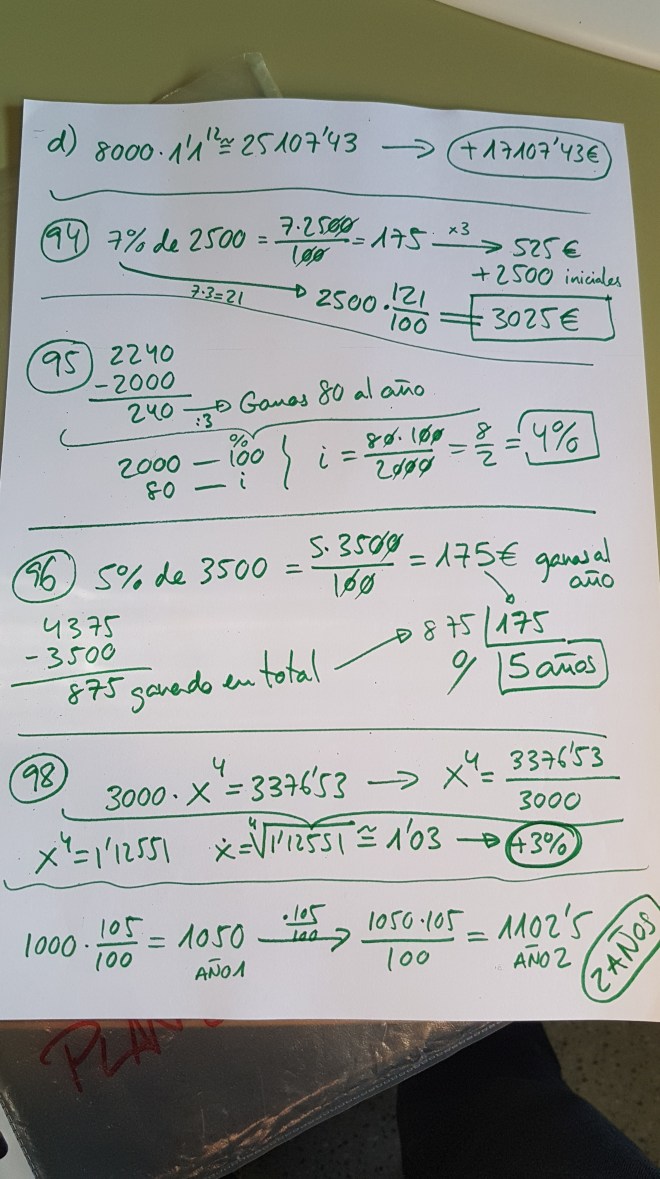 d) 8000·1'1^12 ≅ 25107'43 → +17107'43€
94 7% de 2500 = 7·2500/100 = 175 —×3→ 525€
+2500 iniciales
7·3=21 → 2500·121/100 = 3025€
95 2240
-2000
240 —:3→ Ganas 80 al año
2000 — 100 %
80 — i } i = 80·100/2000 = 8/2 = 4%
96 5% de 3500 = 5·3500/100 = 175€ ganas al año
4375
-3500
875 ganado en total → 875 | 175
0/ 5 años
98 3000·x^4 = 3376'53 → x^4 = 3376'53/3000
x^4 = 1'12551 x = ⁴√1'12551 ≅ 1'03 → +3%
1000·105/100 = 1050 —·105/100→ 1050·105/100 = 1102'5 2 AÑOS
AÑO1 AÑO2
PLAN